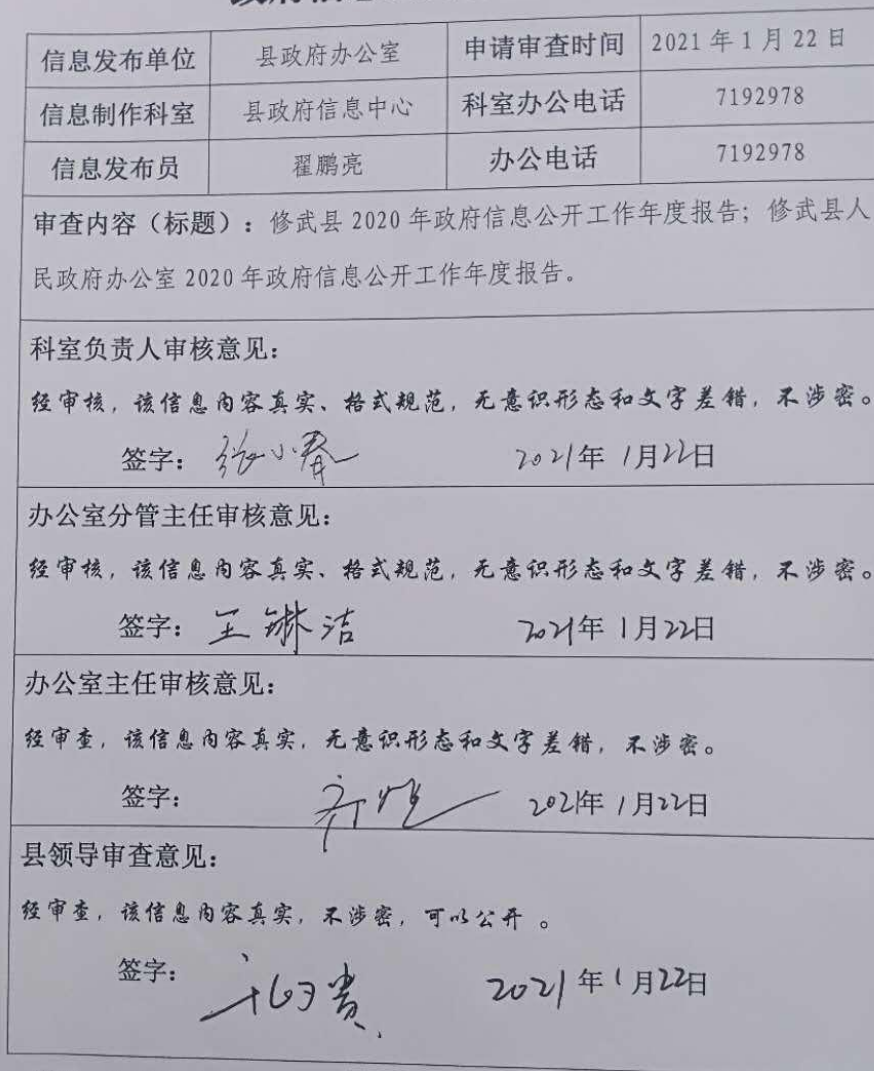 信息发布单位 县政府办公室 申请审查时间 2021 年 1 月 22 日
信息制作科室 县政府信息中心 科室办公电话 7192978
信息发布员 翟鹏亮 办公电话 7192978
审查内容（标题）：修武县 2020 年政府信息公开工作年度报告；修武县人
民政府办公室 2020 年政府信息公开工作年度报告。
科室负责人审核意见：
经审核，该信息内容真实、格式规范，无意识形态和文字差错，不涉密。
签字：张小春 2021年 1月22日
办公室分管主任审核意见：
经审核，该信息内容真实、格式规范，无意识形态和文字差错，不涉密。
签字：王琳洁 2021年 1月22日
办公室主任审核意见：
经审查，该信息内容真实，无意识形态和文字差错，不涉密。
签字： 2021年 1月22日
县领导审查意见：
经审查，该信息内容真实，不涉密，可以公开 。
签字： 2021年1月22日